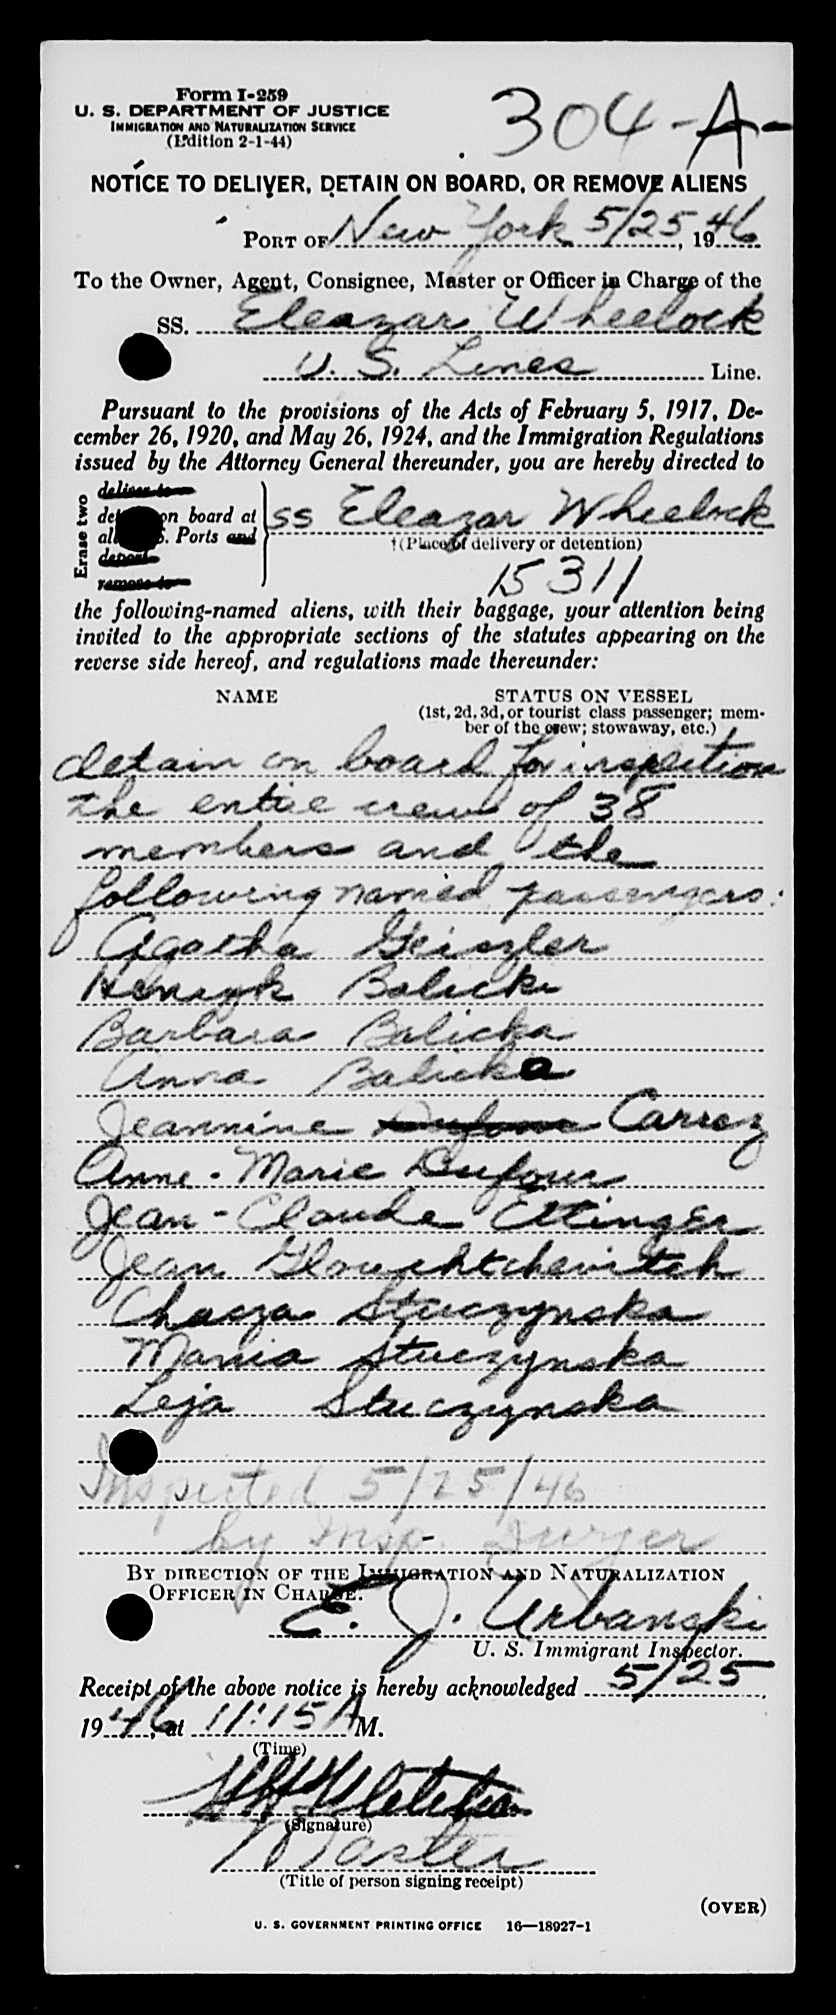 Form I-259
U. S. DEPARTMENT OF JUSTICE
IMMIGRATION AND NATURALIZATION SERVICE
(Edition 2-1-44)
304-A-
NOTICE TO DELIVER, DETAIN ON BOARD, OR REMOVE ALIENS
PORT OF New York 5/25, 1946
To the Owner, Agent, Consignee, Master or Officer in Charge of the
SS. Eleazar Wheelock
U. S. Lines Line.
Pursuant to the provisions of the Acts of February 5, 1917, De-
cember 26, 1920, and May 26, 1924, and the Immigration Regulations
issued by the Attorney General thereunder, you are hereby directed to
Erase two
deliver to
on board at
Ports and
deport
remove to
SS Eleazar Wheelock
(Place of delivery or detention)
15311
the following-named aliens, with their baggage, your attention being
invited to the appropriate sections of the statutes appearing on the
reverse side hereof, and regulations made thereunder:
NAME STATUS ON VESSEL
(1st, 2d, 3d, or tourist class passenger; mem-
ber of the crew; stowaway, etc.)
detain on board for inspection
the entire crew of 38
members and the
following named passengers:
Agatha Geiszler
Henryk Balicki
Barbara Balicka
Anna Balicka
Jeannine Dufour Carrez
Anne-Marie Dufour
Jean-Claude Ettinger
Jean Glouchtchevitch
Chasza Stuczynska
Mania Stuczynska
Leja Stuczynska
Inspected 5/25/46
by Insp.
BY DIRECTION OF THE IMMIGRATION AND NATURALIZATION
OFFICER IN CHARGE.
E. J. Urbanski
U. S. Immigrant Inspector.
Receipt of the above notice is hereby acknowledged 5/25,
1946, at 11:15 A M.
(Time)
(Signature)
Master
(Title of person signing receipt)
(OVER)
U. S. GOVERNMENT PRINTING OFFICE 16—18927-1